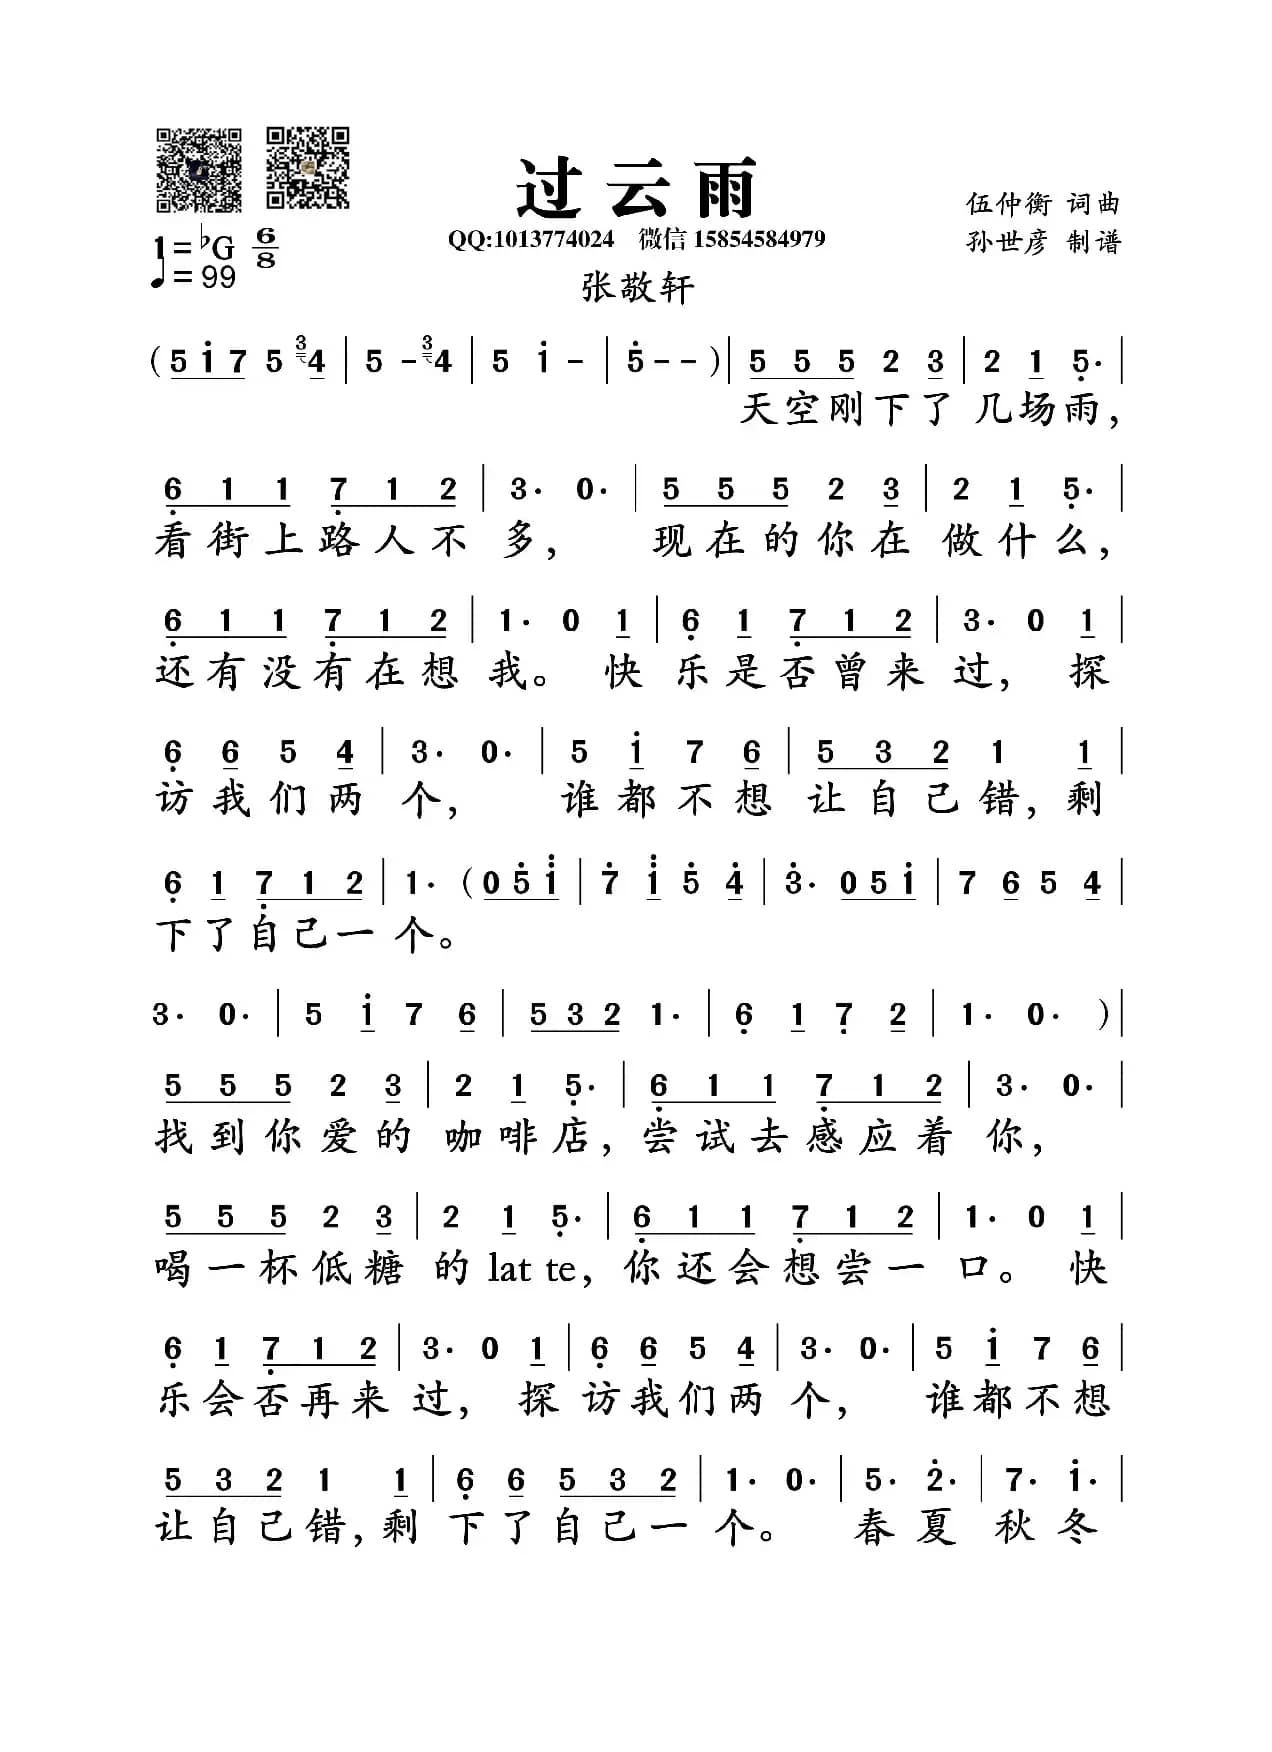 过云雨
伍仲衡 词曲
QQ:1013774024 微信 15854584979
孙世彦 制谱
1=♭G 6/8
♩=99
张敬轩
( 5 1̇ 7 5 3 4 | 5 - 3 4 | 5 1̇ - | 5̇ - - ) | 5 5 5 2 3 | 2 1 5̣· |
天空刚下了 几场雨，
6̣ 1 1 7̣ 1 2 | 3· 0· | 5 5 5 2 3 | 2 1 5̣· |
看街上路人不 多， 现在的你在 做什么，
6̣ 1 1 7̣ 1 2 | 1· 0 1 | 6̣ 1 7̣ 1 2 | 3· 0 1 |
还有没有在想 我。 快 乐是否曾来 过， 探
6̣ 6 5 4 | 3· 0· | 5 1̇ 7 6 | 5 3 2 1 1 |
访我们两 个， 谁都不想 让自己错，剩
6̣ 1 7̣ 1 2 | 1· ( 0 5̇ 1̈ | 7̇ 1̈ 5̇ 4̇ | 3̇· 0 5 1̇ | 7 6 5 4 |
下了自己一 个。
3· 0· | 5 1̇ 7 6 | 5 3 2 1· | 6̣ 1 7̣ 2 | 1· 0· ) |
5 5 5 2 3 | 2 1 5̣· | 6̣ 1 1 7̣ 1 2 | 3· 0· |
找到你爱的 咖啡店，尝试去感应着 你，
5 5 5 2 3 | 2 1 5̣· | 6̣ 1 1 7̣ 1 2 | 1· 0 1 |
喝一杯低糖 的 lat te，你还会想尝一 口。 快
6̣ 1 7̣ 1 2 | 3· 0 1 | 6̣ 6 5 4 | 3· 0· | 5 1̇ 7 6 |
乐会否再来 过， 探 访我们两 个， 谁都不想
5 3 2 1 1 | 6̣ 6 5 3 2 | 1· 0· | 5· 2̇· | 7· 1̇· |
让自己错，剩 下了自己一 个。 春 夏 秋 冬